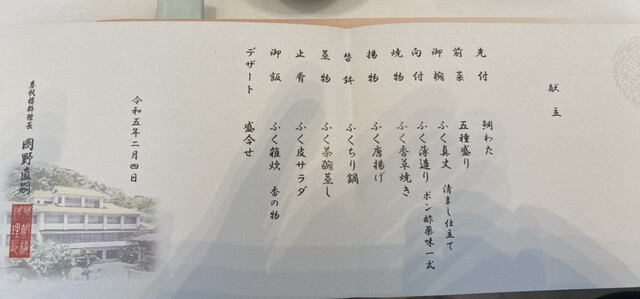 献立
先付 鯛わた
前菜 五種盛り
御椀 ふく真丈 清まし仕立て
向付 ふく薄造り ポン酢薬味一式
焼物 ふく香草焼き
揚物 ふく唐揚げ
替鉢 ふくちり鍋
蒸物 ふく茶碗蒸し
止肴 ふく皮サラダ
御飯 ふく雑炊 香の物
デザート 盛合せ
令和五年二月四日
春帆楼料理長 岡野直嗣